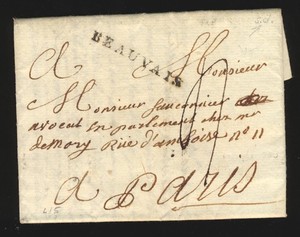 BEAUVAIS
A Monsieur
Monsieur fauconnier
avocat en parlement chez mr
demory Rüe d'amboise n° 11
a Paris